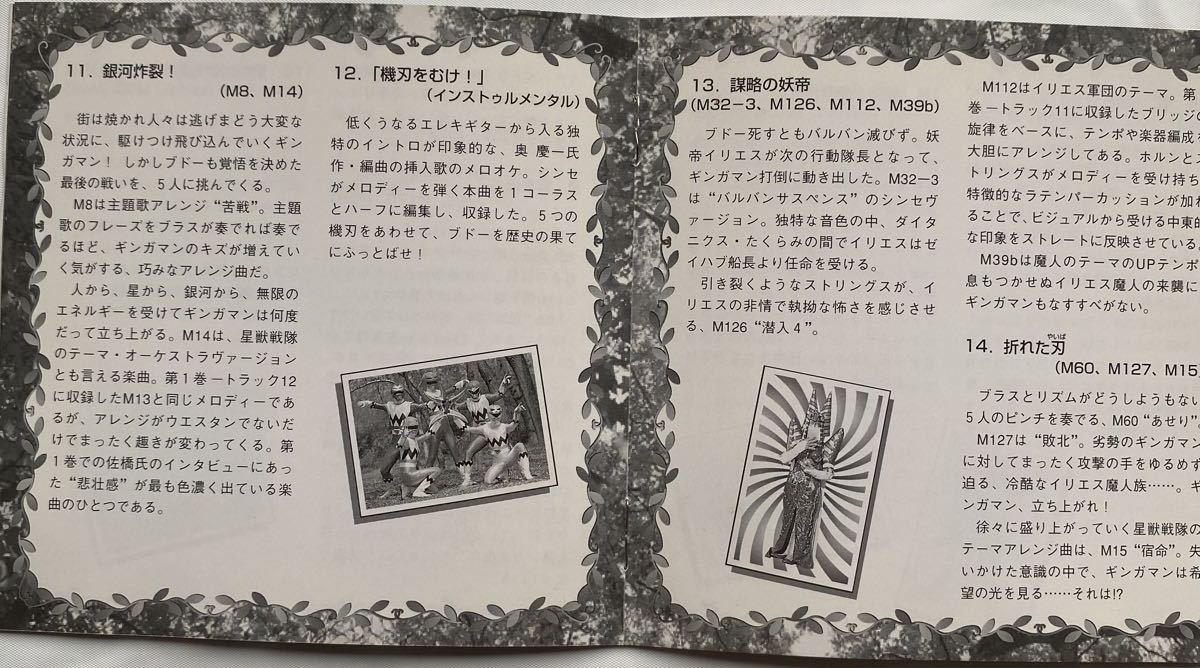 11. 銀河炸裂！
(M8、M14)
　街は焼かれ人々は逃げまどう大変な
状況に、駆けつけ飛び込んでいくギン
ガマン！ しかしブドーも覚悟を決めた
最後の戦いを、5人に挑んでくる。
　M8は主題歌アレンジ“苦戦”。主題
歌のフレーズをブラスが奏でれば奏で
るほど、ギンガマンのキズが増えてい
く気がする、巧みなアレンジ曲だ。
　人から、星から、銀河から、無限の
エネルギーを受けてギンガマンは何度
だって立ち上がる。M14は、星獣戦隊
のテーマ・オーケストラヴァージョン
とも言える楽曲。第1巻ートラック12
に収録したM13と同じメロディーであ
るが、アレンジがウエスタンでないだ
けでまったく趣きが変わってくる。第
1巻での佐橋氏のインタビューにあっ
た“悲壮感”が最も色濃く出ている楽
曲のひとつである。
12.「機刃をむけ！」
(インストゥルメンタル)
　低くうなるエレキギターから入る独
特のイントロが印象的な、奥 慶一氏
作・編曲の挿入歌のメロオケ。シンセ
がメロディーを弾く本曲を1コーラス
とハーフに編集し、収録した。5つの
機刃をあわせて、ブドーを歴史の果て
にふっとばせ！
13. 謀略の妖帝
(M32−3、M126、M112、M39b)
　ブドー死すともバルバン滅びず。妖
帝イリエスが次の行動隊長となって、
ギンガマン打倒に動き出した。M32−3
は“バルバンサスペンス”のシンセヴ
ァージョン。独特な音色の中、ダイタ
ニクス・たくらみの間でイリエスはゼ
イハブ船長より任命を受ける。
　引き裂くようなストリングスが、イ
リエスの非情で執拗な怖さを感じさせ
る、M126“潜入4”。
　M112はイリエス軍団のテーマ。第
巻ートラック11に収録したブリッジの
旋律をベースに、テンポや楽器編成を
大胆にアレンジしてある。ホルンとス
トリングスがメロディーを受け持ち
特徴的なラテンパーカッションが加わ
ることで、ビジュアルから受ける中東的
な印象をストレートに反映させている。
　M39bは魔人のテーマのUPテンポ
息もつかせぬイリエス魔人の来襲に
ギンガマンもなすすべがない。
14. 折れた刃
やいば
(M60、M127、M15、
　ブラスとリズムがどうしようもない
5人のピンチを奏でる、M60“あせり”。
　M127は“敗北”。劣勢のギンガマン
に対してまったく攻撃の手をゆるめず
迫る、冷酷なイリエス魔人族……。ギ
ンガマン、立ち上がれ！
　徐々に盛り上がっていく星獣戦隊の
テーマアレンジ曲は、M15“宿命”。失
いかけた意識の中で、ギンガマンは希
望の光を見る……それは!?